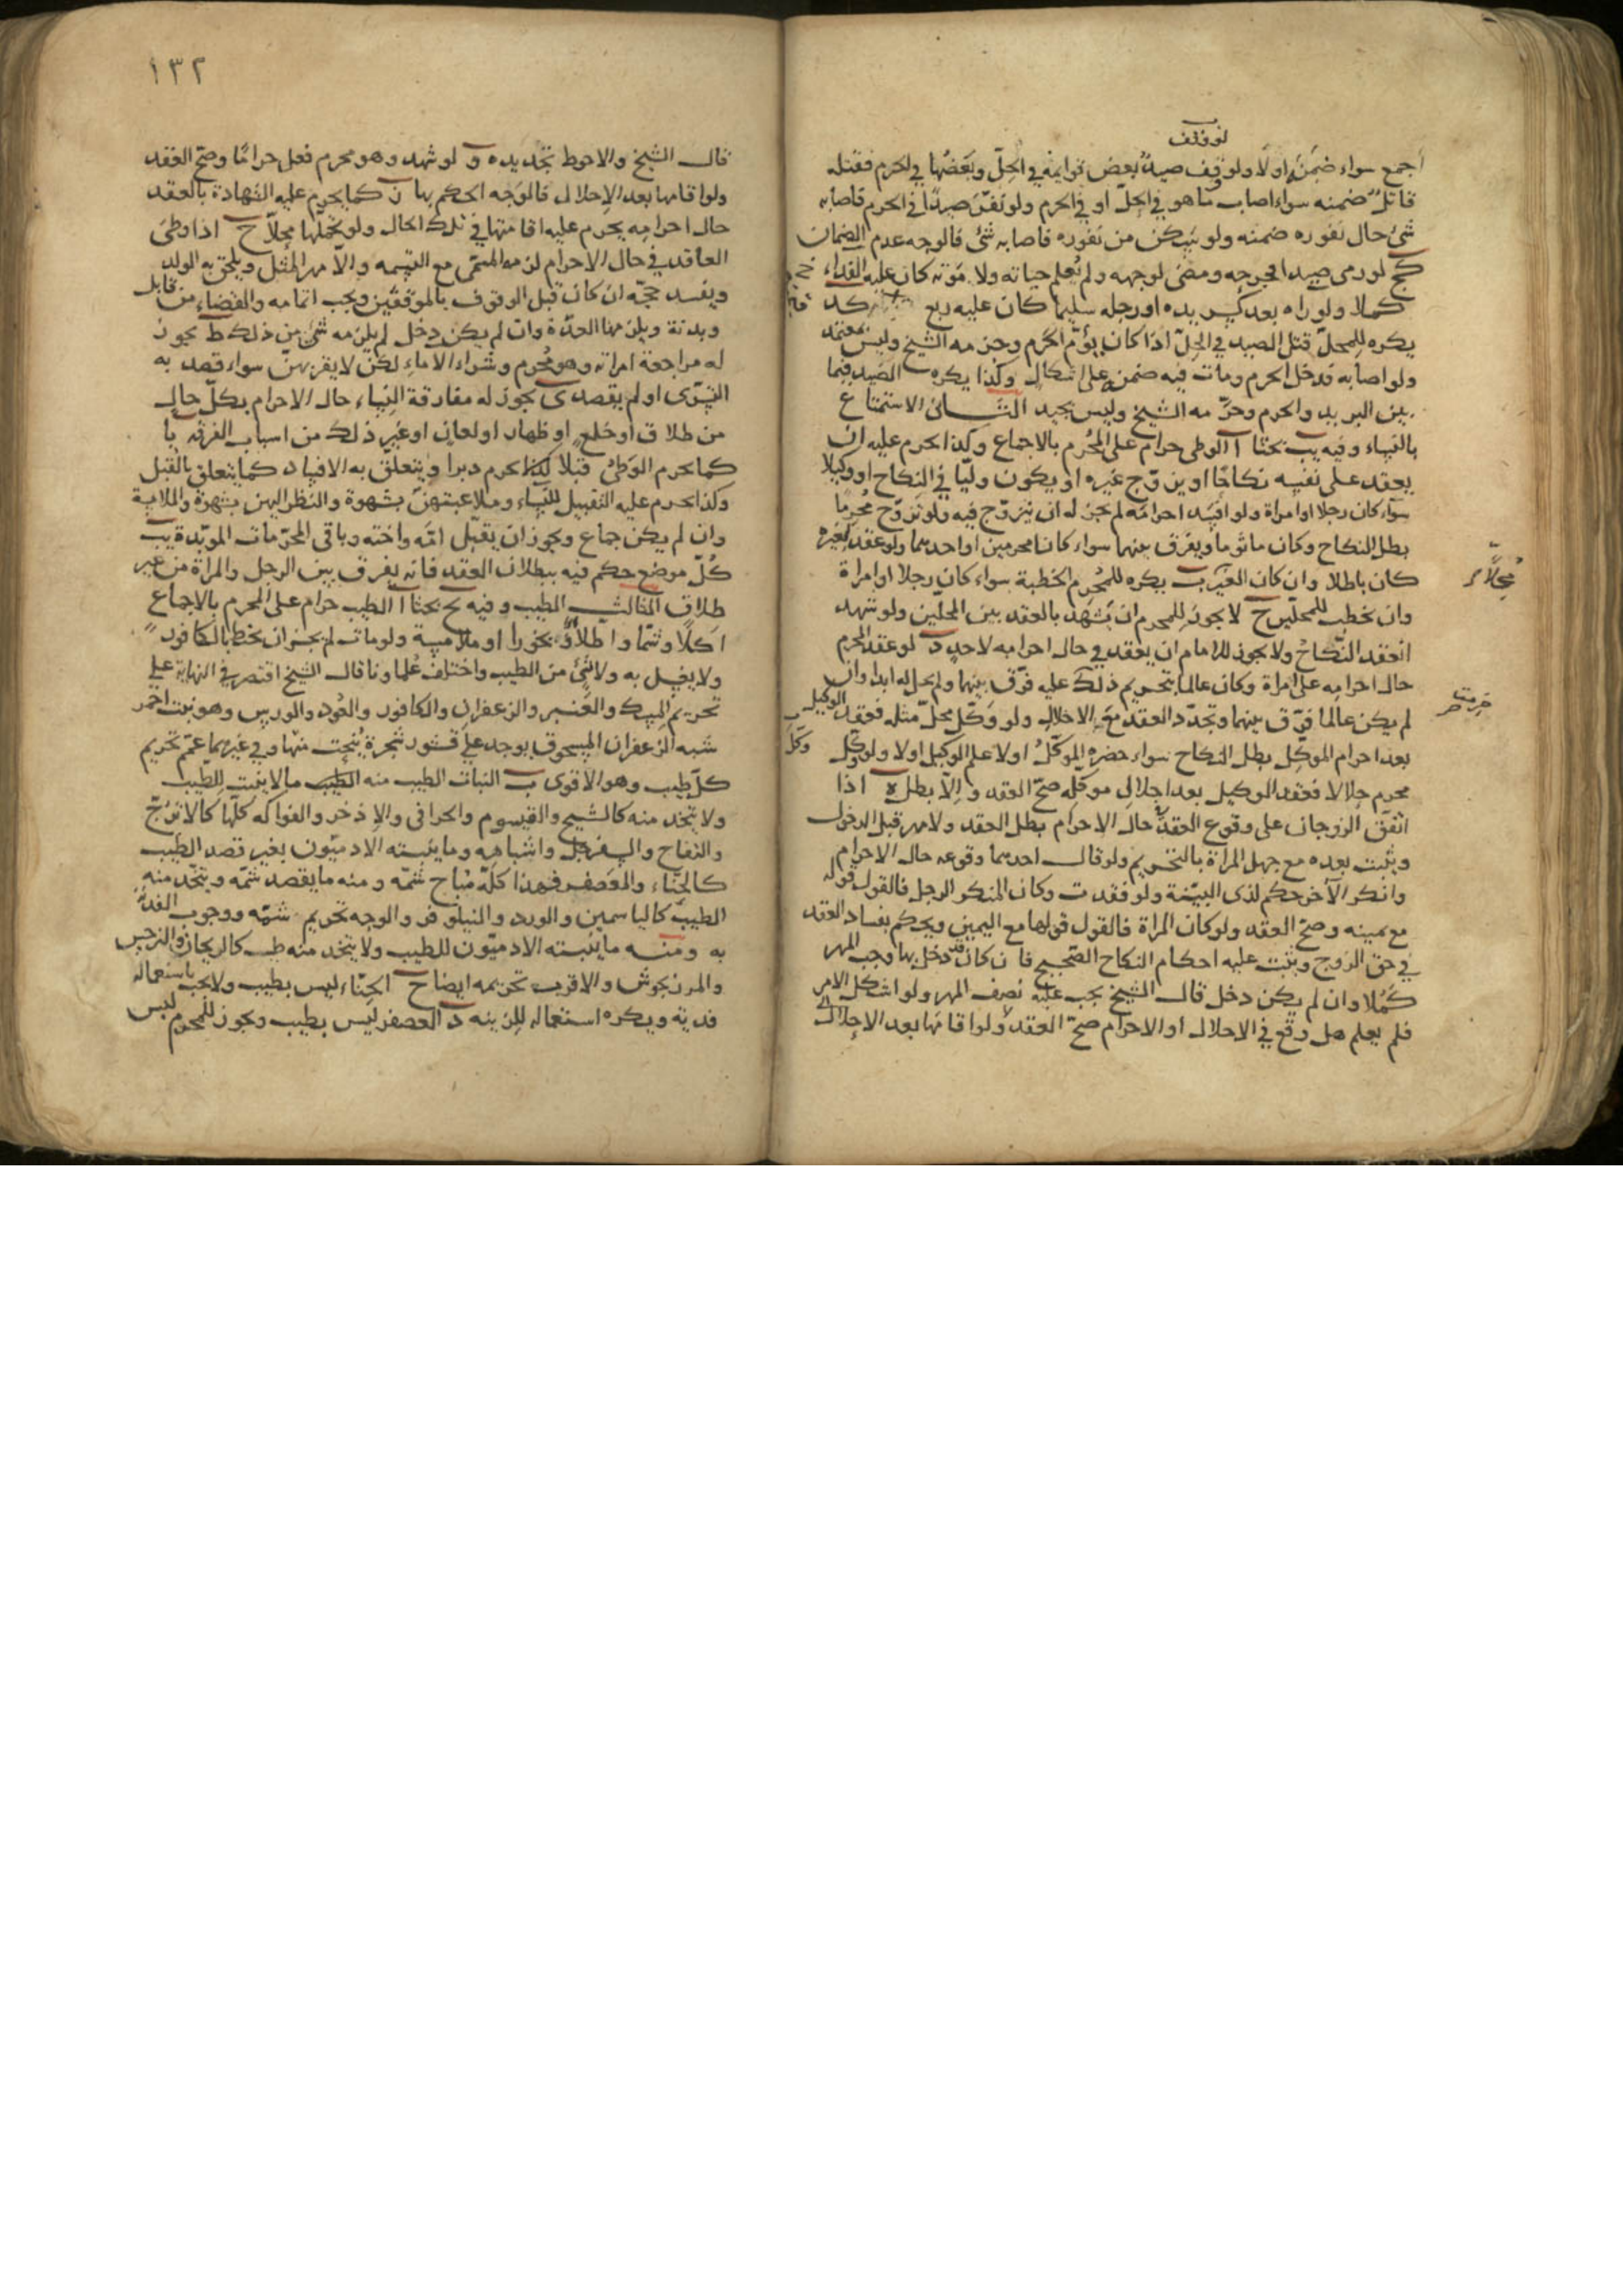 لو وقف
اجمع سواء ضمن اولا ولو وقف صيد بعض قوايمه في الحل وبعضها في الحرم فقتله
قاتل ضمنه سواء اصاب ما هو في الحل او في الحرم ولو نفر صيدا في الحرم فاصابه
شئ حال نفوره ضمنه ولو سكن من نفوره فاصابه شئ فالوجه عدم الضمان
كج لو رمى صيدا فجرحه ومضى لوجهه ولم يعلم حياته ولا موته كان عليه الفداء
كملا ولو راه بعد كسر يده او رجله سليما كان عليه ربع كد
يكره للمحل قتل الصيد في الحل اذا كان يؤم الحرم وحرمه الشيخ وليس بمعتمد
ولو اصابه فدخل الحرم ومات فيه ضمنه على اشكال وكذا يكره الصيد فيما
بين البريد والحرم وحرمه الشيخ وليس بجيد الثاني الاستمتاع
بالنساء وفيه يب بحثا ا الوطى حرام على المحرم بالاجماع وكذا يحرم عليه ان
يعقد على نفسه نكاحا او يزوج غيره او يكون وليا في النكاح او وكيلا
سواء كان رجلا او امراة ولو افسد احرامه لم يجز له ان يتزوج فيه ولو تزوج محرما
بطل النكاح وكان ماثوما ويفرق بينهما سواء كانا محرمين او احدهما ولو عقد لغيره
كان باطلا وان كان الغير ب يكره للمحرم الخطبة سواء كان رجلا او امراة
محلا
وان يخطب للمحلين ج لا يجوز للمحرم ان يشهد بالعقد بين المحلين ولو شهد
انعقد النكاح ولا يجوز للامام ان يعقد في حال احرامه لاحد د لو عقد المحرم
حال احرامه على امراة وكان عالما بتحريم ذلك عليه فرق بينهما ولم تحل له ابدا وان
لم يكن عالما فرق بينهما وتجدد العقد مع الاحلال ولو وكل محل مثله فعقد الوكيل
بعد احرام الموكل بطل النكاح سواء حضره الموكل اولا علم الوكيل اولا ولو وكل
محرم حلالا فعقد الوكيل بعد احلال موكله صح العقد والا بطل ه اذا
اتفق الزوجان على وقوع العقد حال الاحرام بطل العقد ولا مهر قبل الدخول
ويثبت بعده مع جهل المراة بالتحريم ولو قال احدهما وقوعه حال الاحرام
وانكر الاخر حكم لذى البينة ولو فقدت وكان المنكر الرجل فالقول قوله
مع يمينه وصح العقد ولو كان المراة فالقول قولها مع اليمين ويحكم بفساد العقد
في حق الزوج ويثبت عليه احكام النكاح الصحيح فان كان قد دخل بها وجب المهر
كملا وان لم يكن دخل قال الشيخ يجب عليه نصف المهر ولو اشكل الامر
فلم يعلم هل وقع في الاحلال او الاحرام صح العقد ولو اقامها بعد الاحلال
١٣٢
قال الشيخ والاحوط تجديده و لو شهد وهو محرم فعل حراما وصح العقد
ولو اقامها بعد الاحلال فالوجه الحكم بها ز كما يحرم عليه الشهادة بالعقد
حال احرامه يحرم عليه اقامتها في تلك الحال ولو تحملها محلا ح اذا وطئ
العاقد في حال الاحرام لزمه المسمى مع التسمية والا مهر المثل ويلحق به الولد
ويفسد حجه ان كان قبل الوقوف بالموقفين ويجب اتمامه والقضاء من قابل
وبدنة ويلزمها العدة وان لم يكن دخل لم يلزمه شئ من ذلك ط يجوز
له مراجعة امراته وهو محرم وشراء الاماء لكن لا يقربهن سواء قصد به
التسرى او لم يقصد ى يجوز له مفارقة النساء حال الاحرام بكل حال
من طلاق او خلع او ظهار او لعان او غير ذلك من اسباب الفرقه يا
كما يحرم الوطئ قبلا كذا يحرم دبرا ويتعلق به الافساد كما يتعلق بالقبل
وكذا يحرم عليه التقبيل للنساء وملاعبتهن بشهوة والنظر اليهن بشهوة والملامسة
وان لم يكن جماع ويجوز ان يقبل امه واخته وباقى المحرمات الموبدة يب
كل موضع حكم فيه ببطلان العقد فانه يفرق بين الرجل والمراة من غير
طلاق الثالث الطيب وفيه يج بحثا ا الطيب حرام على المحرم بالاجماع
اكلا وشما واطلاء وبخورا او ملامسة ولو مات لم يجز ان يحنط بالكافور
ولا يغسل به ولا بشئ من الطيب واختلف علماونا قال الشيخ اقتصر في النهاية على
تحريم المسك والعنبر والزعفران والكافور والعود والورس وهو نبت احمر
شبه الزعفران المسحوق يوجد على قشور شجرة ينحت منها وفي غيرها عمم تحريم
كل طيب وهو الاقوى ب النبات الطيب منه ما لا ينبت للطيب
ولا يتخذ منه كالشيح والقيسوم والخزامى والاذخر والفواكه كلها كالاترج
والتفاح والسفرجل واشباهه وما ينبته الادميون بغير قصد الطيب
كالحناء والعصفر فهذا كله مباح شمه ومنه ما يقصد شمه ويتخذ منه
الطيب كالياسمين والورد والنيلوفر والوجه تحريم شمه ووجوب الفدية
به ومنه ما ينبته الادميون للطيب ولا يتخذ منه طيب كالريحان والنرجس
والمرزنجوش والاقرب تحريمه ايضا ج الحناء ليس بطيب ولا يجب باستعماله
فدية ويكره استعماله للزينه د العصفر ليس بطيب ويجوز للمحرم لبس